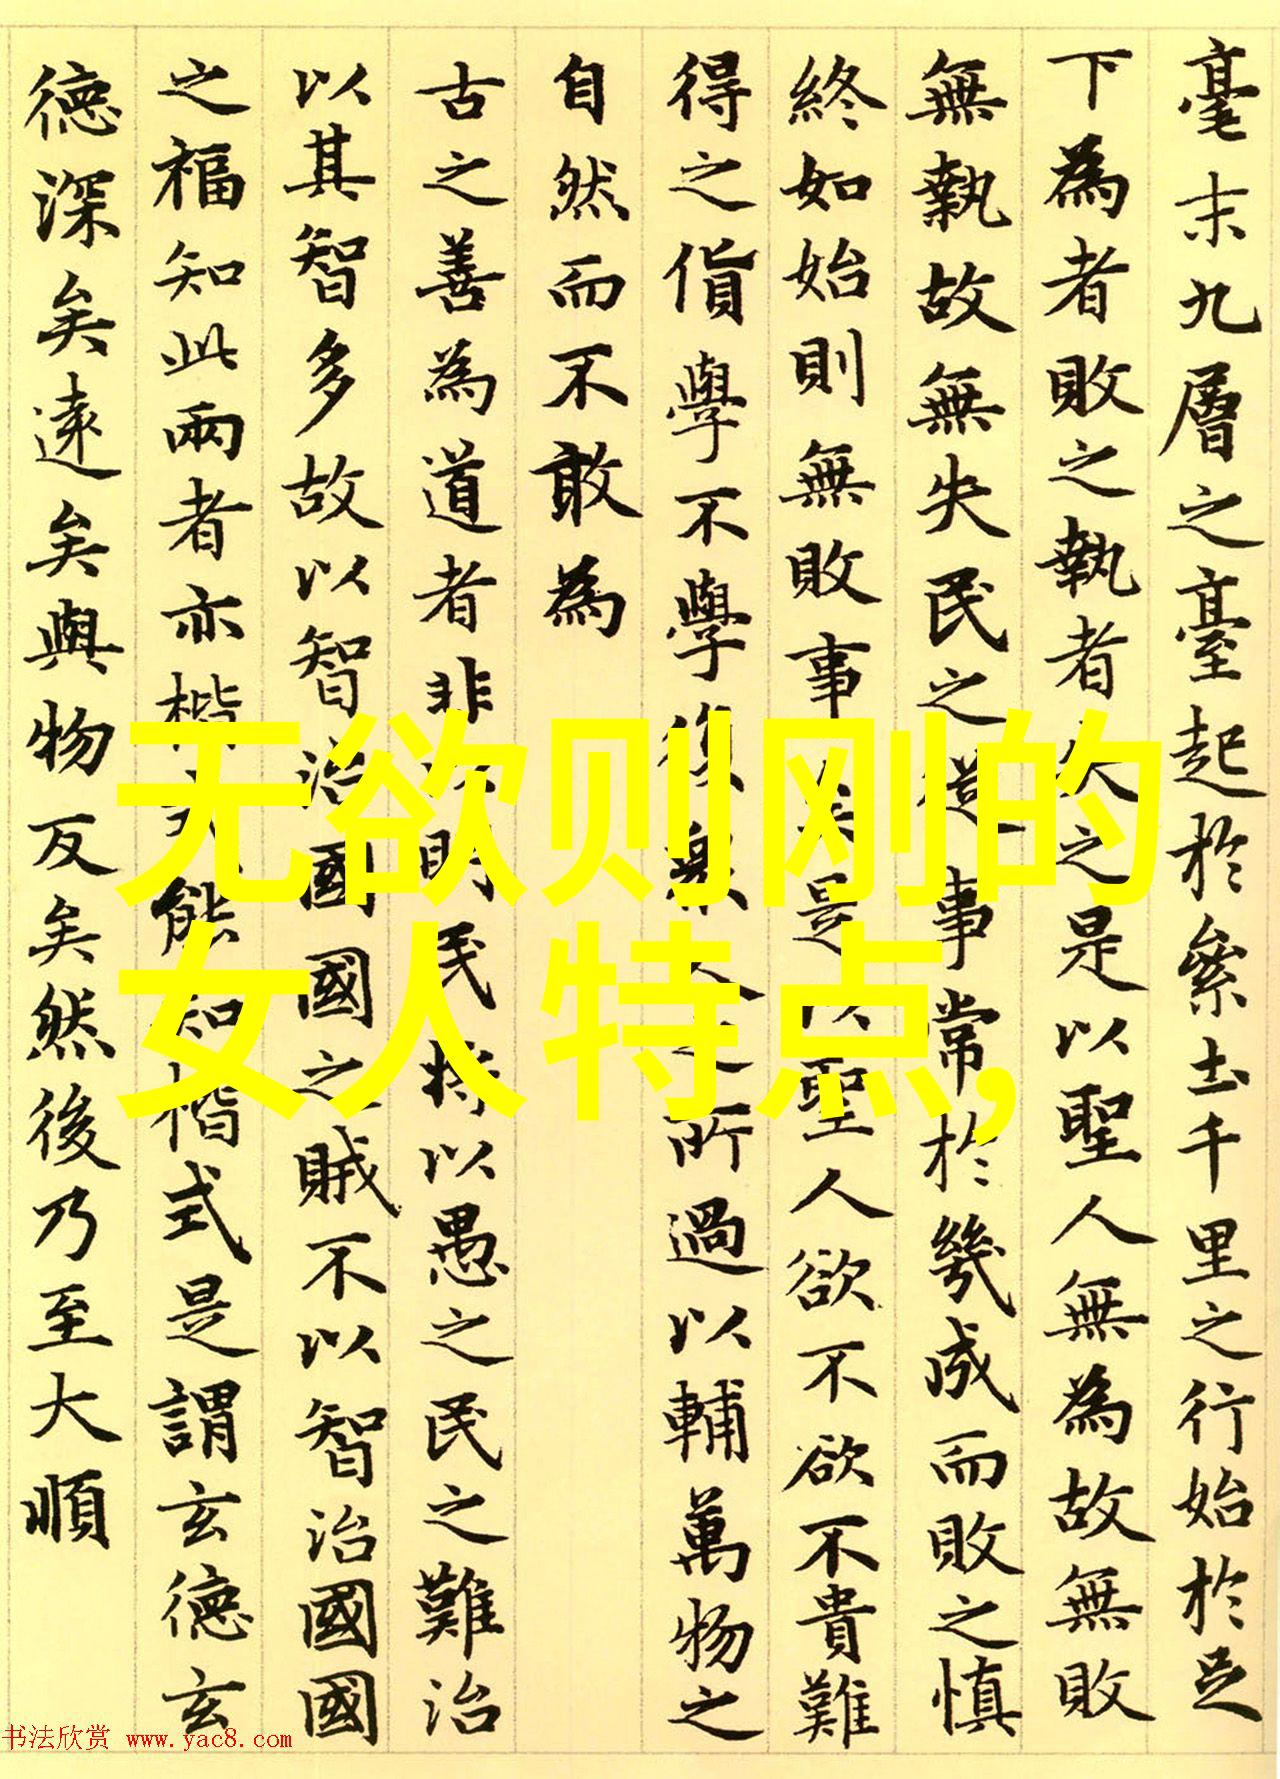 毫末九層之臺起於絫土千里之行始於足
下為者敗之執者失之是以聖人無為故無敗
無執故無失民之從事常於幾成而敗之慎
終如始則無敗事矣是以聖人欲不欲不貴難
得之貨學不學復衆人之所過以輔萬物之
自然而不敢為
古之善為道者非以明民將以愚之民之難治
以其智多故以智治國國之賊不以智治國國
之福知此兩者亦楷式能知楷式是謂玄德玄
德深矣遠矣與物反矣然後乃至大順
无欲则刚的
女人特点,
书法欣赏 www.yac8.com